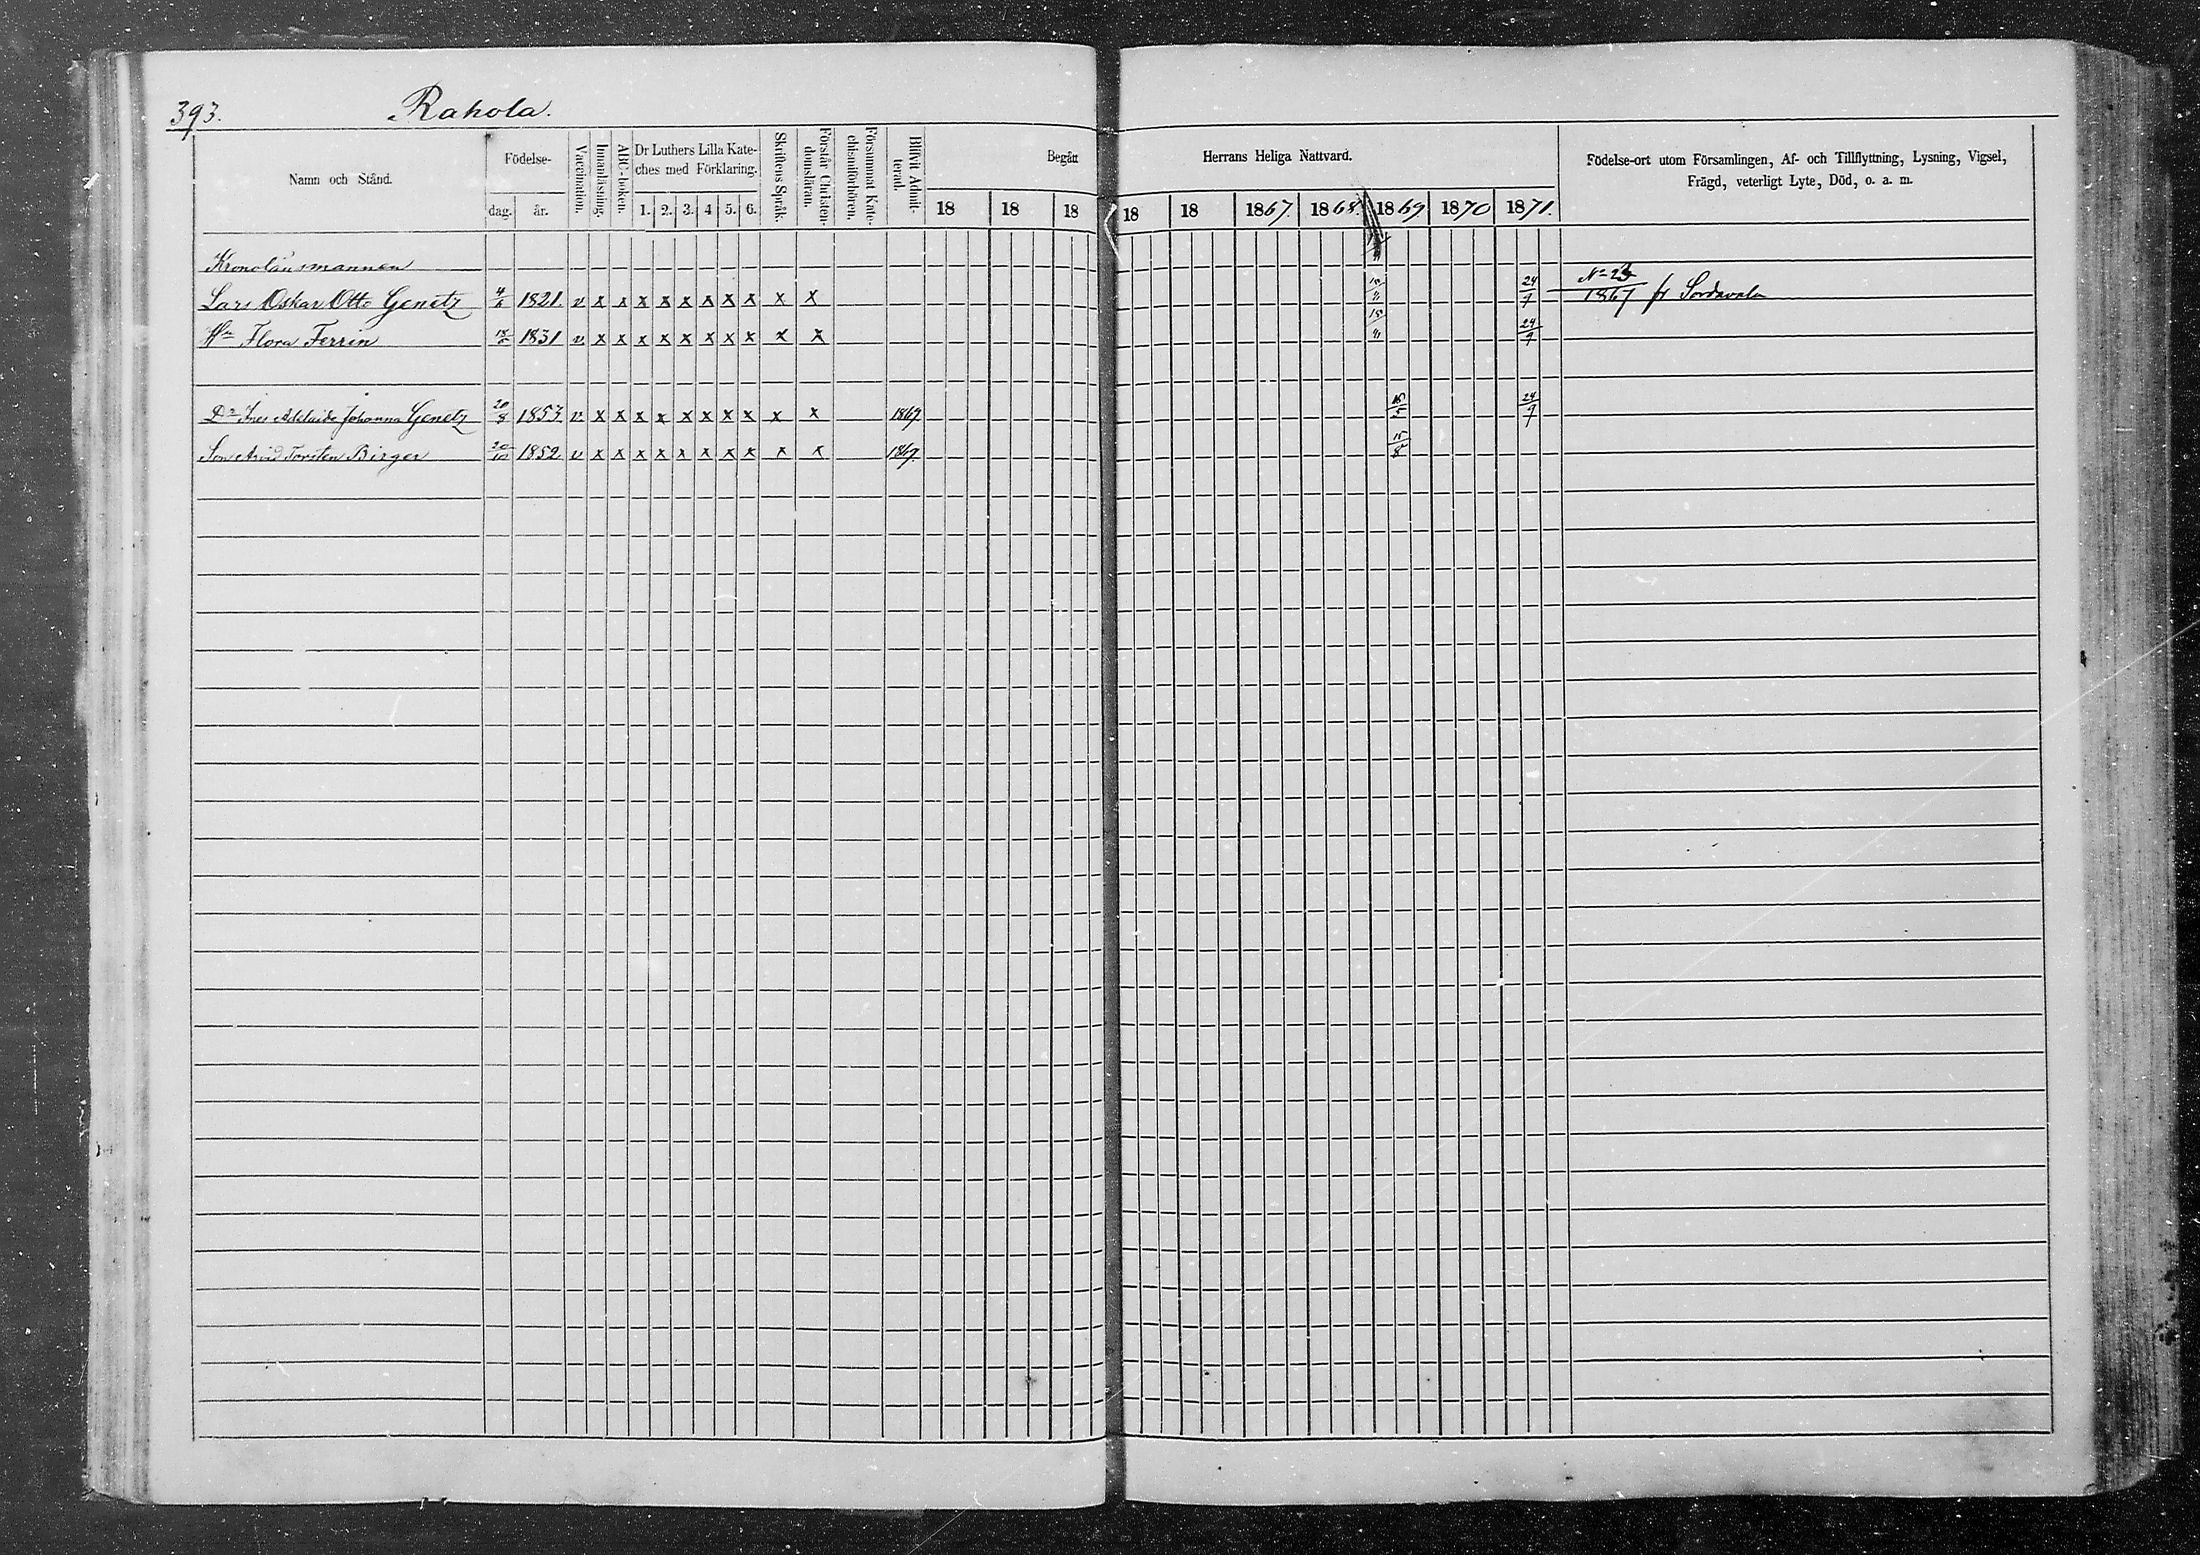 393. Rahola.
Namn och Stånd. Födelse- dag. år. Vaccination. Innanläsning. ABC-boken. Dr Luthers Lilla Kateches med Förklaring. 1. 2. 3. 4 5. 6. Skriftens Språk. Förstår Christendomsläran. Försummat Katechismiförhören. Blifvit Admitterad. Begått Herrans Heliga Nattvard. Födelse-ort utom Församlingen, Af- och Tillflyttning, Lysning, Vigsel, Frägd, veterligt Lyte, Död, o. a. m.
18 18 18 18 18 1867. 1868. 1869 1870 1871.
Kronolänsmannen
Lars Oskar Otto Genetz 4/6 1821. v x x x x x x x x x x 24/9 1867 fr Sordavala
Hu Flora Ferrin 1831 v x x x x x x x x x x 24/9
Dr Ines Adelaide Johanna Genetz 20/8 1853 v. x x x x x x x x x x 1869. 15/5 24/9
Son Arvid Torsten Birger 20/10 1852 v x x x x x x x x x x 1869. 15/8